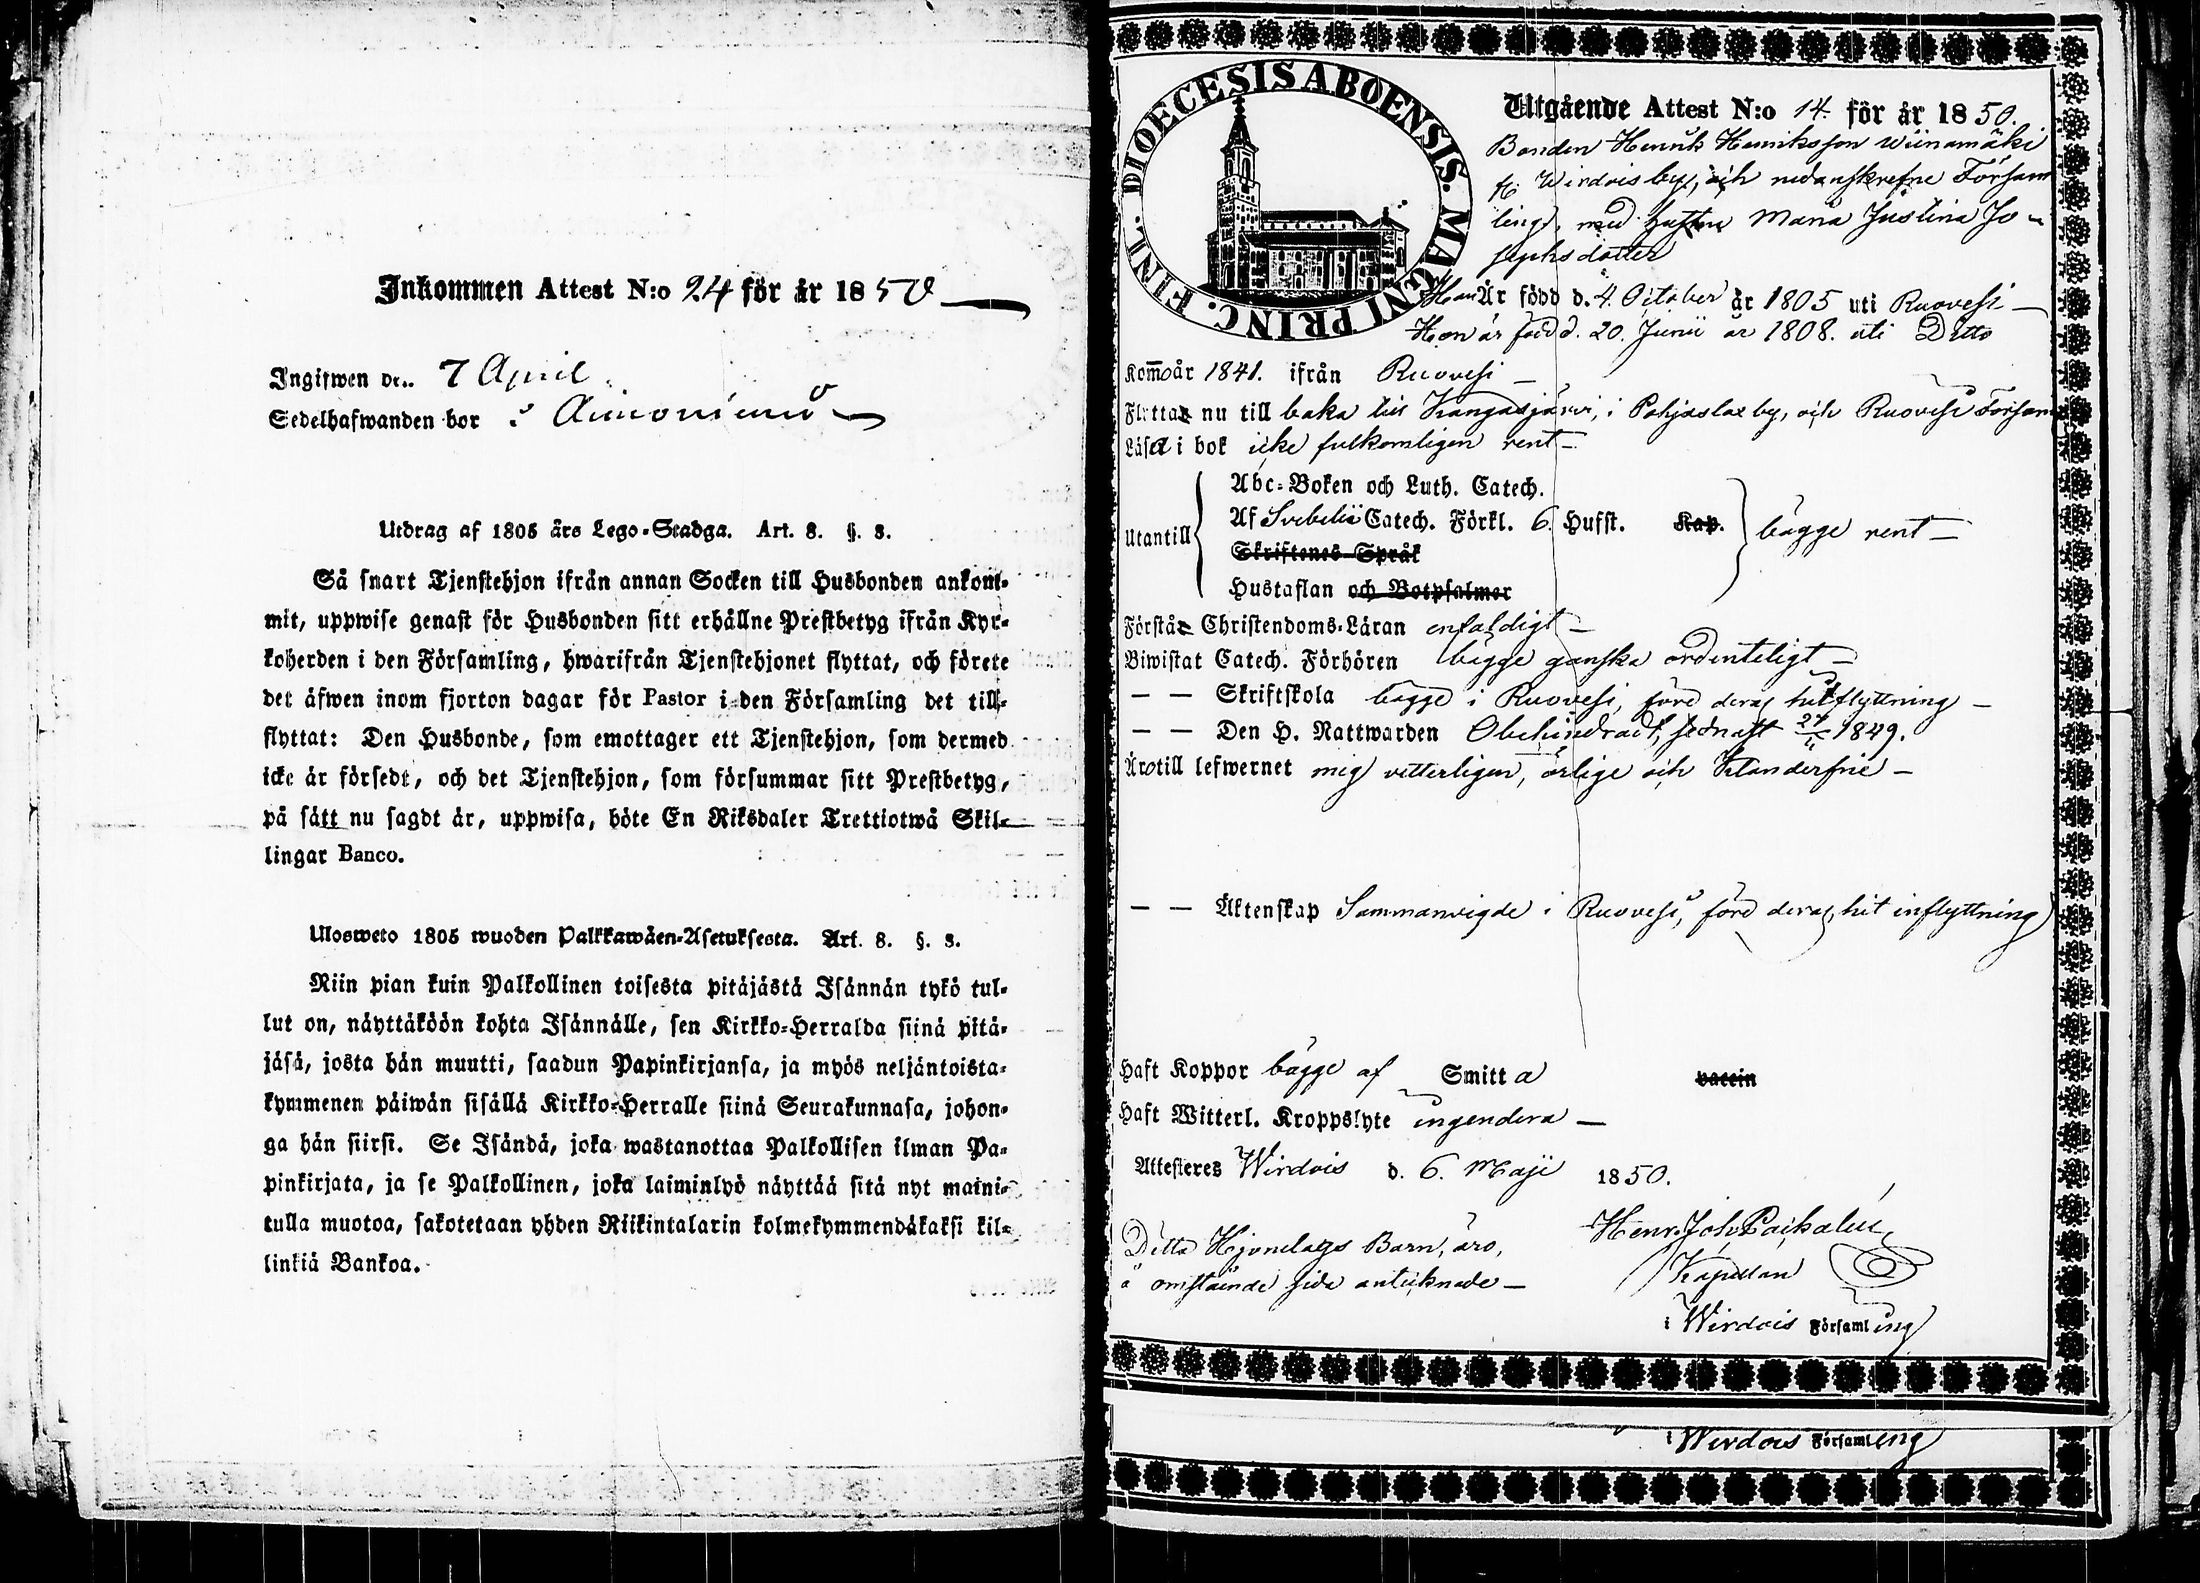 Inkommen Attest N:o 24 för år 1850
Ingifwen den 7 April
Sedelhafwanden bor i
Utdrag af 1805 års Lego-Stadga. Art. 8. §. 3.
Så snart Tjenstehjon ifrån annan Socken till Husbonden ankom-
mit, uppwise genast för Husbonden sitt erhållne Prestbetyg ifrån Kyr-
koherden i den Församling, hwarifrån Tjenstehjonet flyttat, och förete
det äfwen inom fjorton dagar för Pastor i den Församling det till-
flyttat: Den Husbonde, som emottager ett Tjenstehjon, som dermed
icke är försedt, och det Tjenstehjon, som försummar sitt Prestbetyg,
på sätt nu sagdt är, uppwisa, böte En Riksdaler Trettiotwå Skil-
lingar Banco.
Ulosweto 1805 wuoden Palkkawäen-Asetuksesta. Art. 8. §. 3.
Niin pian kuin Palkollinen toisesta pitäjästä Isännän tykö tul-
lut on, näyttäköön kohta Isännälle, sen Kirkko-Herralda siinä pitä-
jäsä, josta hän muutti, saadun Papinkirjansa, ja myös neljäntoista-
kymmenen päiwän sisällä Kirkko-Herralle siinä Seurakunnasa, johon-
ga hän siirsi. Se Isändä, joka wastanottaa Palkollisen ilman Pa-
pinkirjata, ja se Palkollinen, joka laiminlyö näyttää sitä nyt maini-
tulla muotoa, sakotetaan yhden Riikintalarin kolmekymmendäkaksi kil-
linkiä Bankoa.
DIOECESIS ABOENSIS. MAGNI PRINC. FINL.
Utgående Attest N:o 14. för år 1850.
Bonden Henrik Henriksson Wiinamäki
fr. Wirdois by, och nedanskrefne Försam
lingd, med hustru Maria Justina Jo-
sephsdotter
Han Är född d. 4. October år 1805 uti Ruovesi
Hon är född d. 20. Junii år 1808. uti Ditto
Kommo år 1841. ifrån Ruovesi
Flytta nu till baka till Kangasjärvi, i Pohjaslax by, och Ruovesi Försam
Läsa i bok icke fulkomligen rent
Abc-Boken och Luth. Catech.
Utantill Af Svebelii Catech. Förkl. 6. Hufst. Kap. bägge rent
Skriftenes Språk
Hustaflan och Botpsalmer
Förstå Christendoms-Läran enfaldigt
Biwistat Catech. Förhören bägge ganska ordenteligt
— — Skriftskola bägge i Ruovesi, före deras hitflyttning
— — Den H. Nattwarden Obehindradt, sednast 1849.
Äro till lefwernet mig vetterligen, ärlige och klanderfrie
— — Äktenskap Sammanvigde i Ruovesi, före deras hit inflyttning
Haft Koppor bägge af Smitta vaccin
Haft Witterl. Kroppslyte ingendera
Attesteres Wirdois d. 6. Maji 1850.
Henr. Joh. Paihalén
Detta Hjonelags Barn, äro,
Kapellan
å omstående sida antecknade
i Wirdois Församling
i Wirdois Församling